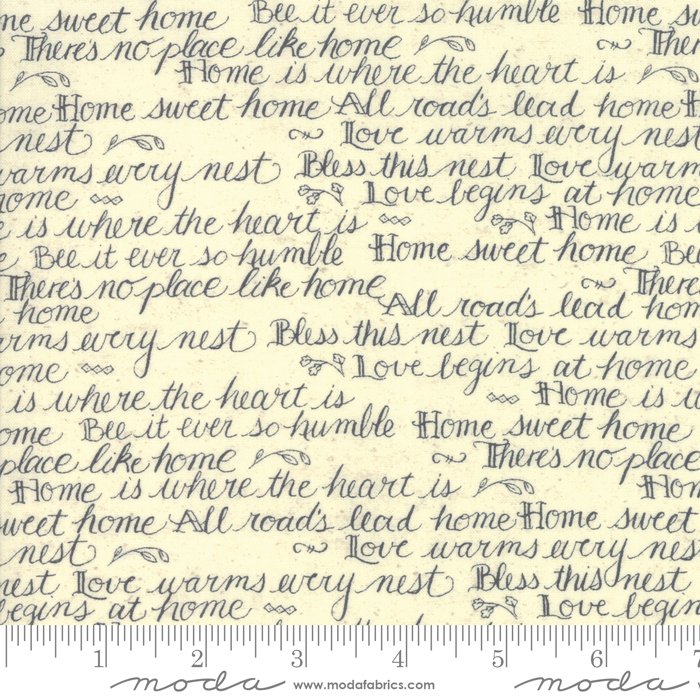 me sweet home Bee it ever so humble Home sw
There's no place like home There
Home is where the heart is
ome Home sweet home All road's lead home H
nest Love warms every nest
warms every nest Bless this nest Love warm
home Love begins at home
e is where the heart is Home is w
e Bee it ever so humble Home sweet home Bee
There's no place like home There
home All road's lead hom
rms every nest Bless this nest Love warms
ome Love begins at home
is where the heart is Home is w
ome Bee it ever so humble Home sweet home
place like home There's no place
Home is where the heart is Hom
weet home All road's lead home Home sweet
nest Love warms every nes
nest Love warms every nest Bless this nest
begins at home Love begin
1 2 3 4 5 6 7
moda www.modafabrics.com moda